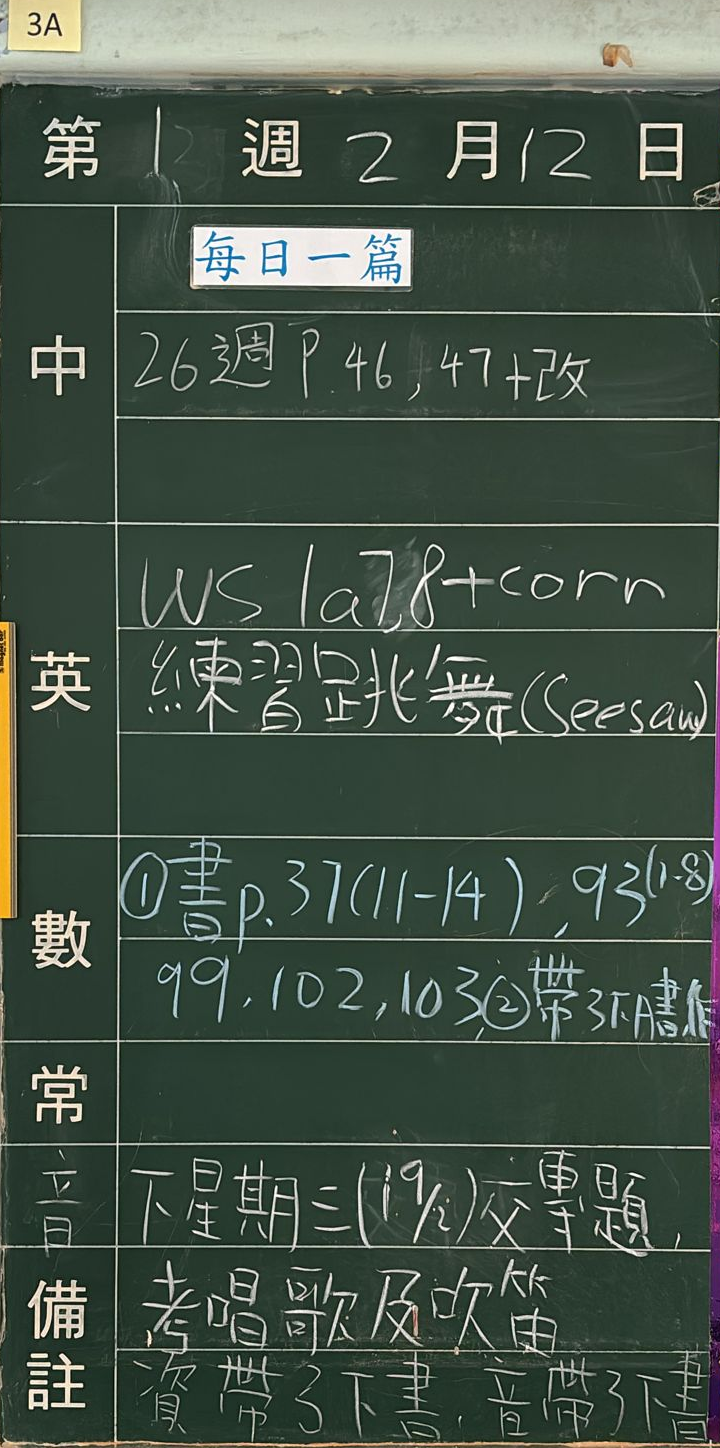 3A
第 12 週 2 月 12 日
每日一篇
中
26週 P.46,47+改
英
WS 1a7,8+corn
練習跳舞(Seesaw)
數
①書p.37(11-14),93(1-8)
99,102,103②帶3下A書作
常
音
下星期三(19/2)交專題,
備註
考唱歌及吹笛
資帶3下書,音帶3下書